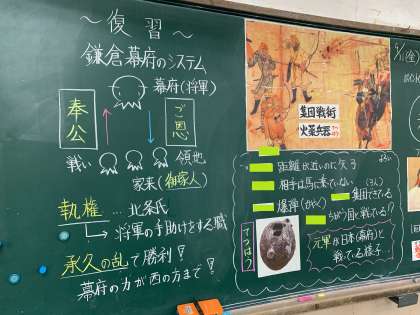 ～復習～
鎌倉幕府のシステム
幕府(将軍)
奉公
ご恩
戦い
領地
家来(御家人)
執権…北条氏
将軍の手助けをする職
承久の乱で勝利！
幕府の力が西の方まで！
集団戦術
火薬兵器
距離が近いのに矢
相手は馬に乗っていない
爆弾(かやく)
集団できている
ちがう国と戦っている!?
てつはう
元軍が日本(幕府)と
戦っている様子